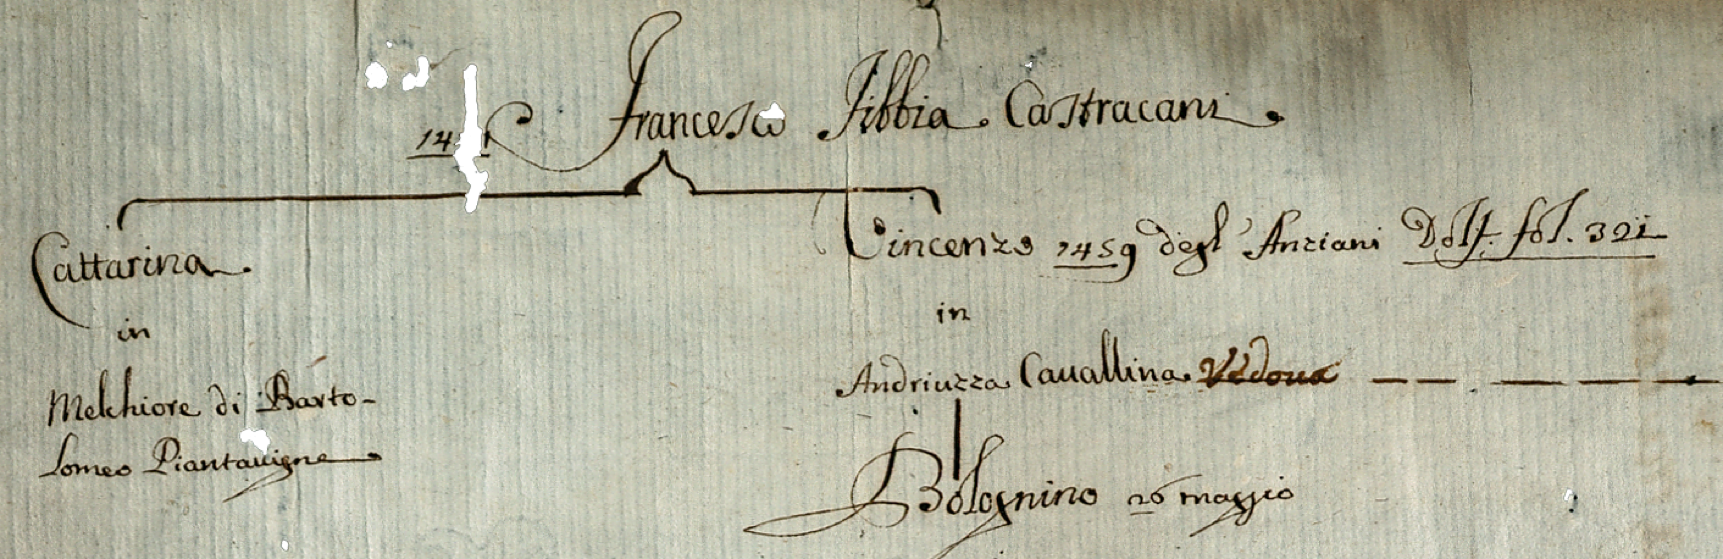 Francesco Fibbia Castracani
Cattarina
Vincenzo 1459 degl' Anziani Dolf. fol. 321
in
in
Andriuzza Cavallina Vedova
Melchiore di Barto-
lomeo Piantavigne
Bolognino 26 maggio